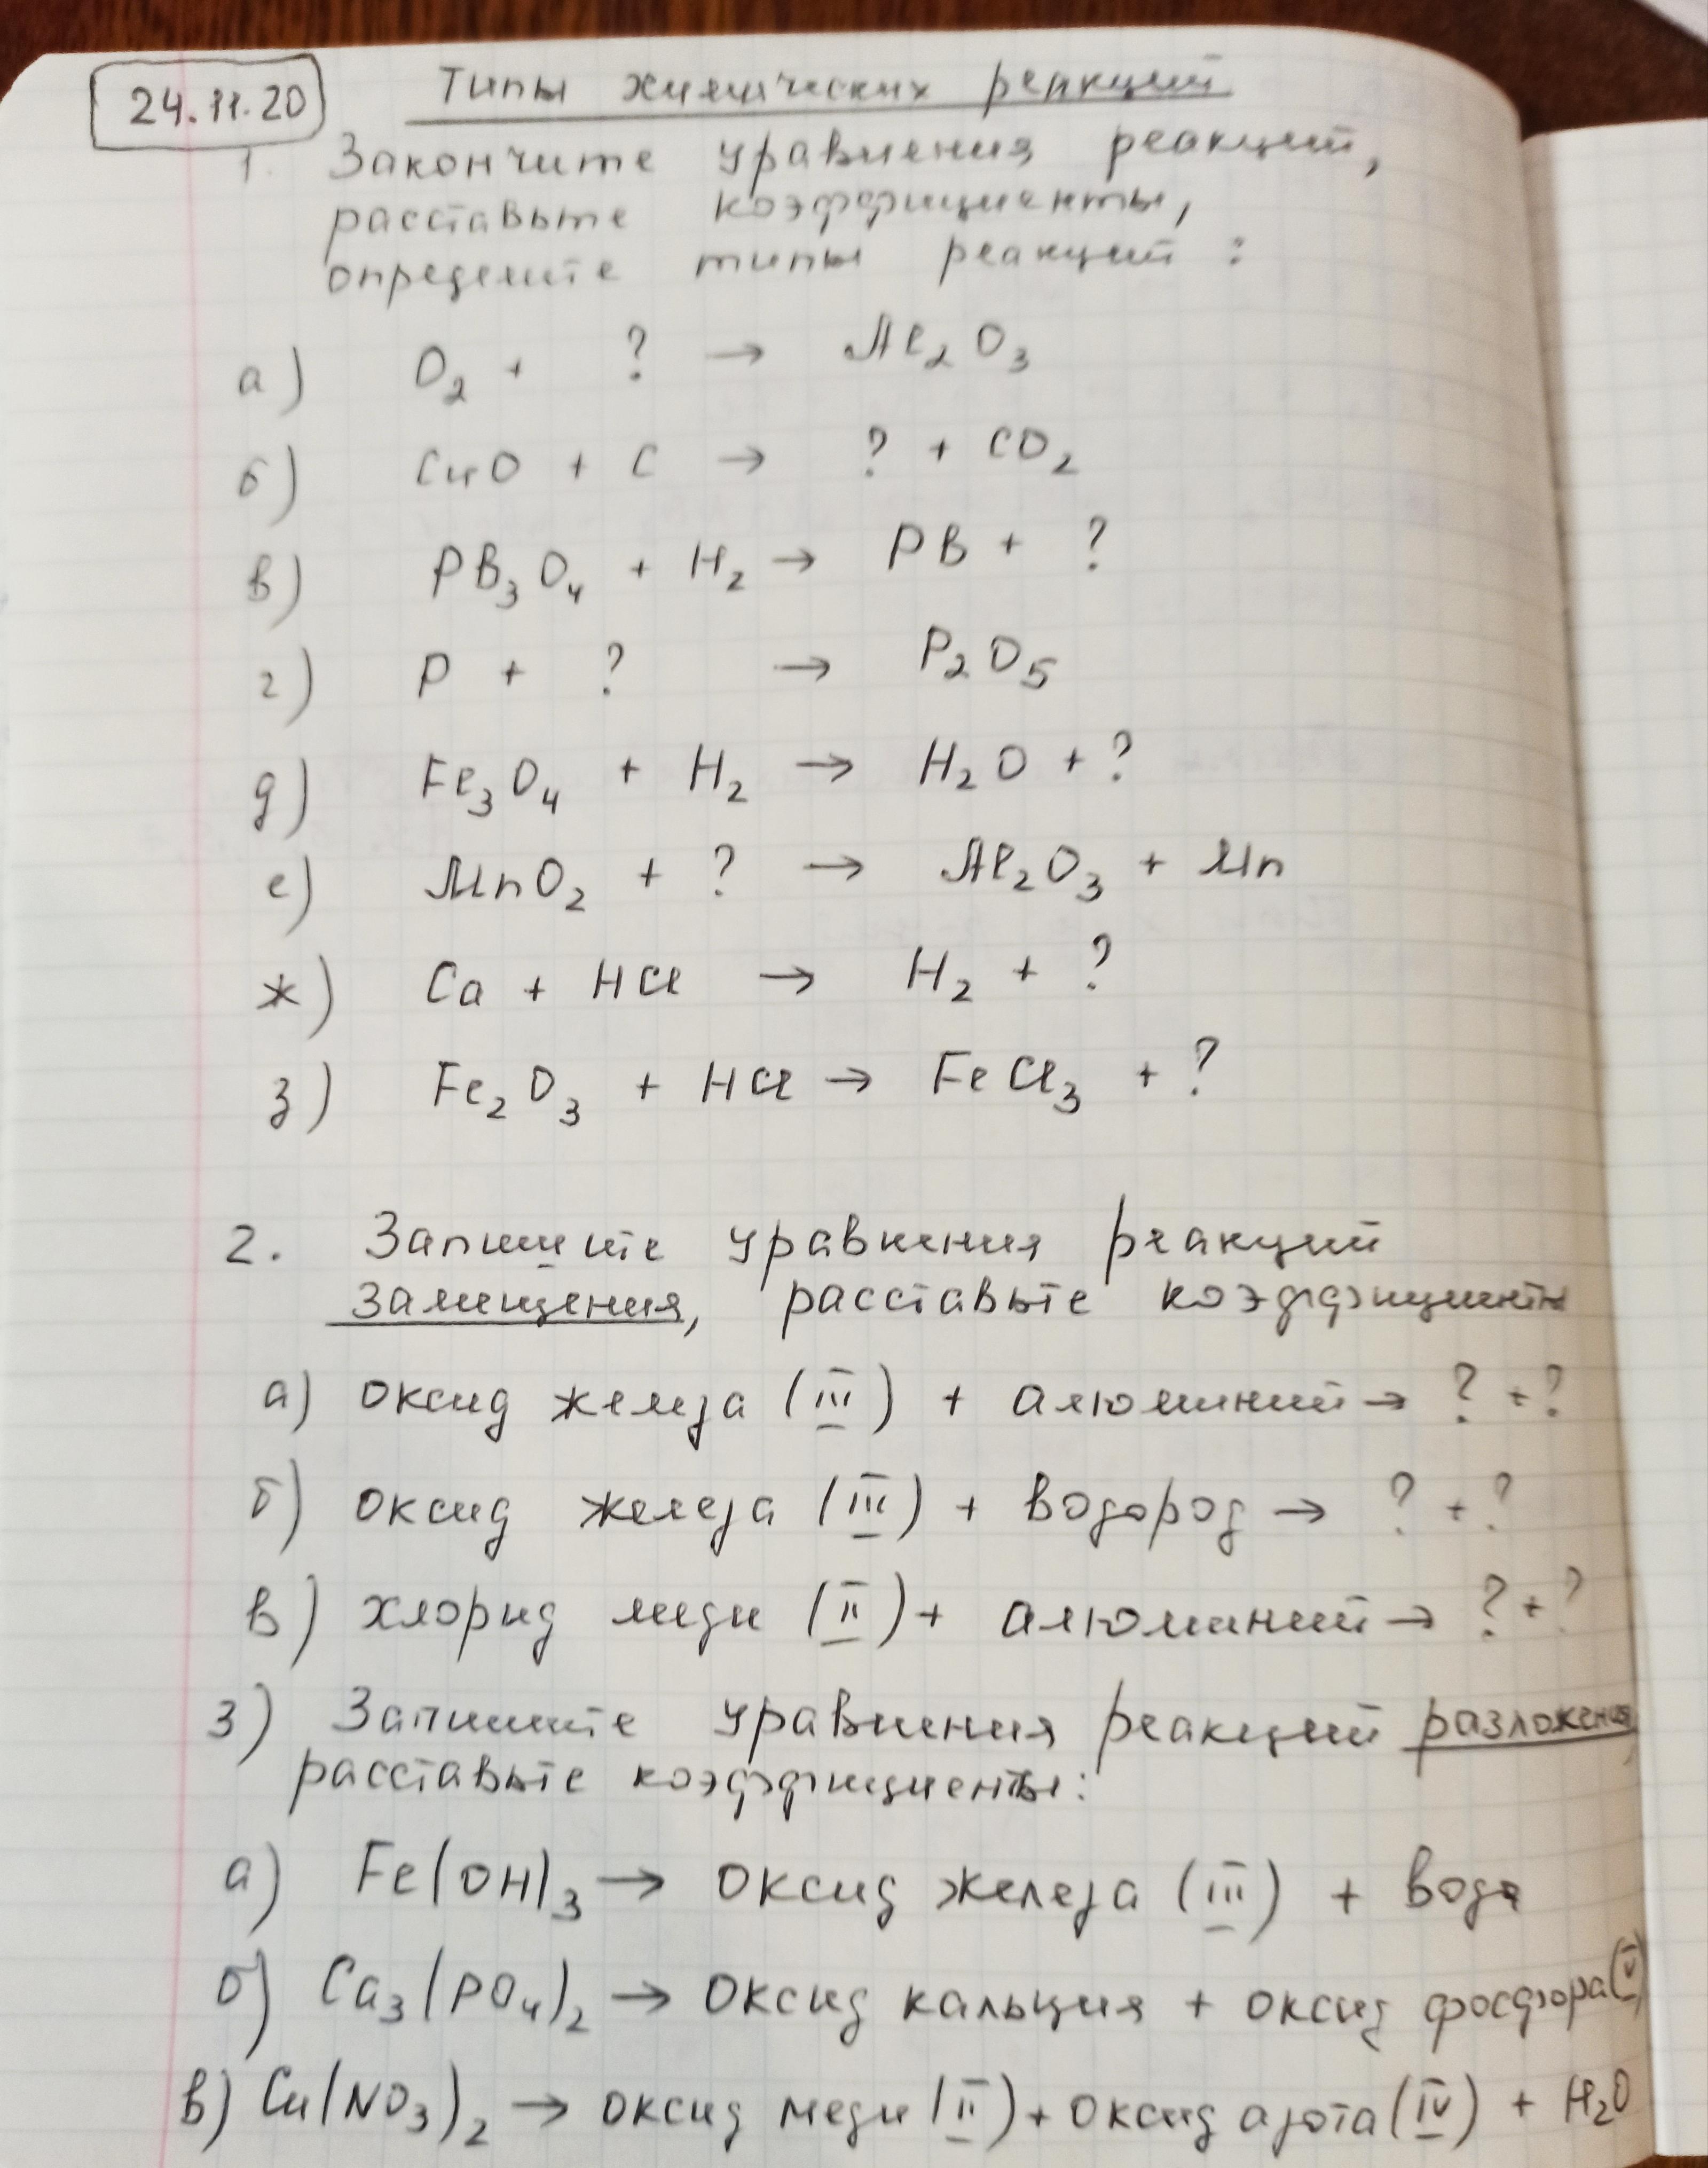 24.11.20
Типы химических реакций
1. Закончите уравнения реакций,
расставьте коэффициенты,
определите типы реакций:
а) O₂ + ? → Al₂O₃
б) CuO + C → ? + CO₂
в) PB₃O₄ + H₂ → PB + ?
г) P + ? → P₂O₅
д) Fe₃O₄ + H₂ → H₂O + ?
е) MnO₂ + ? → Al₂O₃ + Mn
ж) Ca + HCl → H₂ + ?
з) Fe₂O₃ + HCl → FeCl₃ + ?
2. Запишите уравнения реакций
замещения, расставьте коэффициенты
а) оксид железа (III) + алюминий → ? + ?
б) оксид железа (III) + водород → ? + ?
в) хлорид меди (II) + алюминий → ? + ?
3) Запишите уравнения реакций разложения,
расставьте коэффициенты:
а) Fe(OH)₃ → оксид железа (III) + вода
б) Ca₃(PO₄)₂ → оксид кальция + оксид фосфора(V)
в) Cu(NO₃)₂ → оксид меди (II) + оксид азота (IV) + H₂O